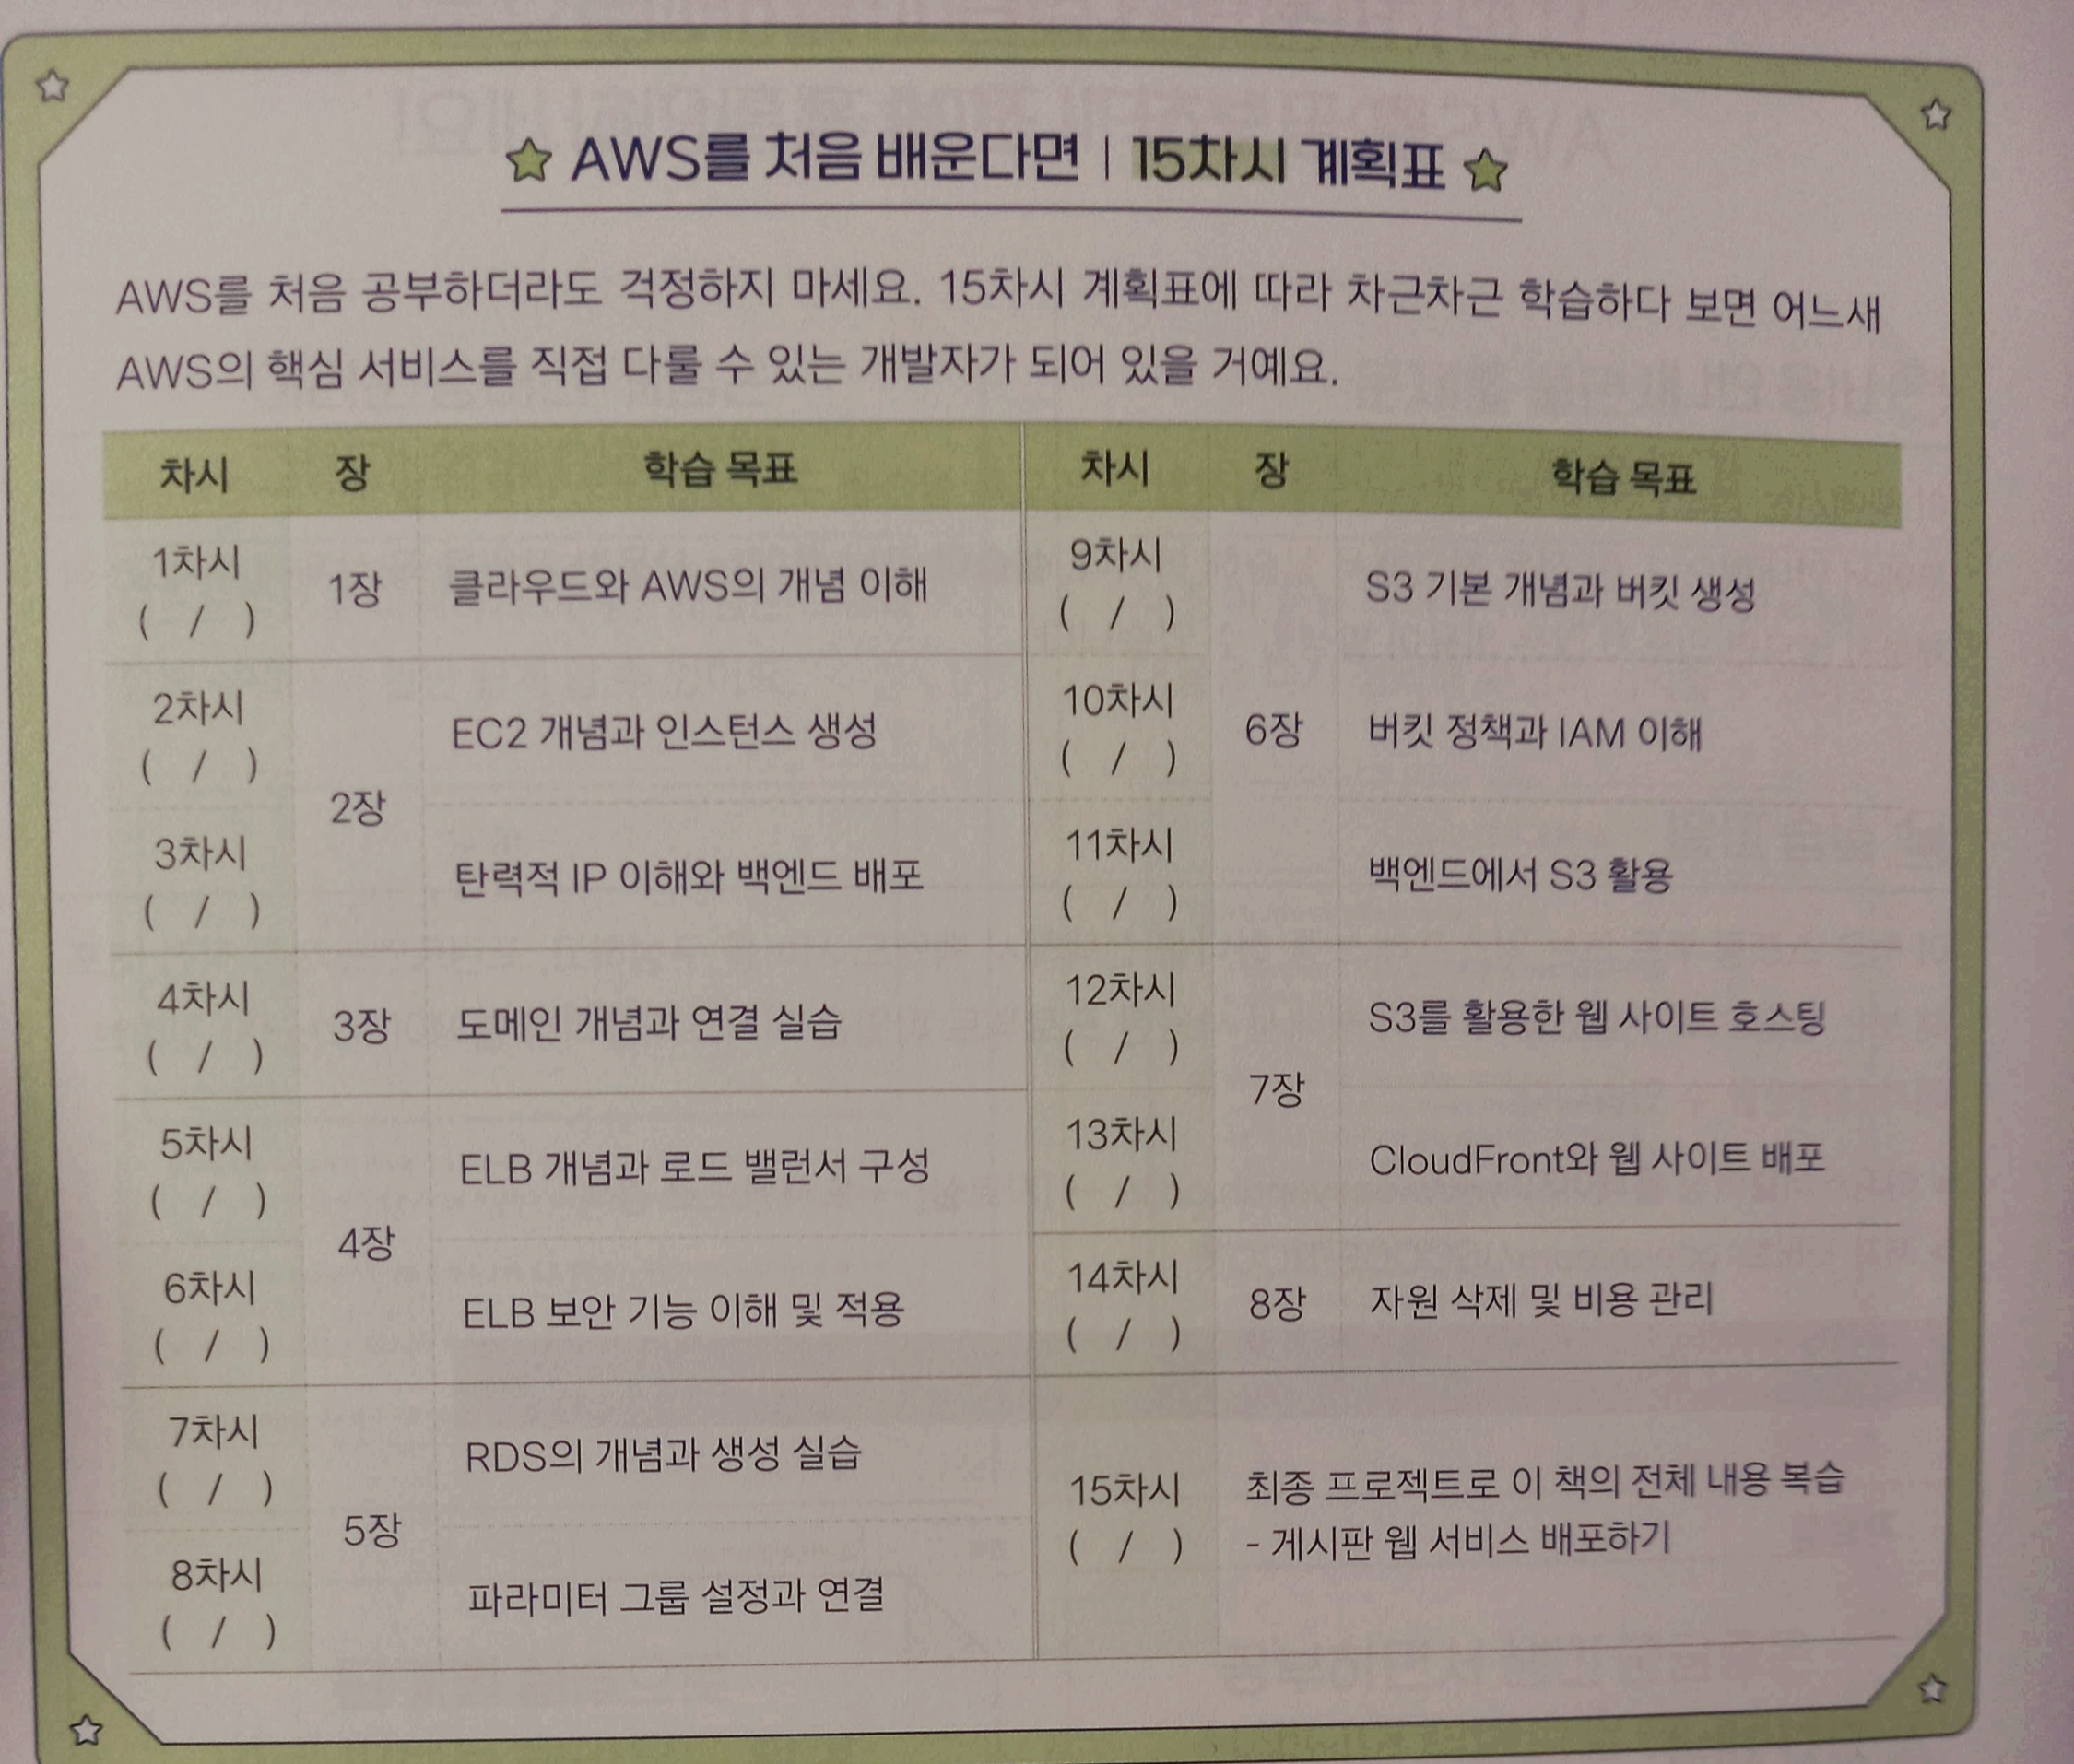 AWS를 처음 배운다면 | 15차시 계획표
AWS를 처음 공부하더라도 걱정하지 마세요. 15차시 계획표에 따라 차근차근 학습하다 보면 어느새
AWS의 핵심 서비스를 직접 다룰 수 있는 개발자가 되어 있을 거예요.
차시 장 학습 목표
1차시
( / )
1장
클라우드와 AWS의 개념 이해
2차시
( / )
2장
EC2 개념과 인스턴스 생성
3차시
( / )
탄력적 IP 이해와 백엔드 배포
4차시
( / )
3장
도메인 개념과 연결 실습
5차시
( / )
4장
ELB 개념과 로드 밸런서 구성
6차시
( / )
ELB 보안 기능 이해 및 적용
7차시
( / )
5장
RDS의 개념과 생성 실습
8차시
( / )
파라미터 그룹 설정과 연결
차시 장 학습 목표
9차시
( / )
S3 기본 개념과 버킷 생성
10차시
( / )
6장
버킷 정책과 IAM 이해
11차시
( / )
백엔드에서 S3 활용
12차시
( / )
7장
S3를 활용한 웹 사이트 호스팅
13차시
( / )
CloudFront와 웹 사이트 배포
14차시
( / )
8장
자원 삭제 및 비용 관리
15차시
( / )
최종 프로젝트로 이 책의 전체 내용 복습
- 게시판 웹 서비스 배포하기